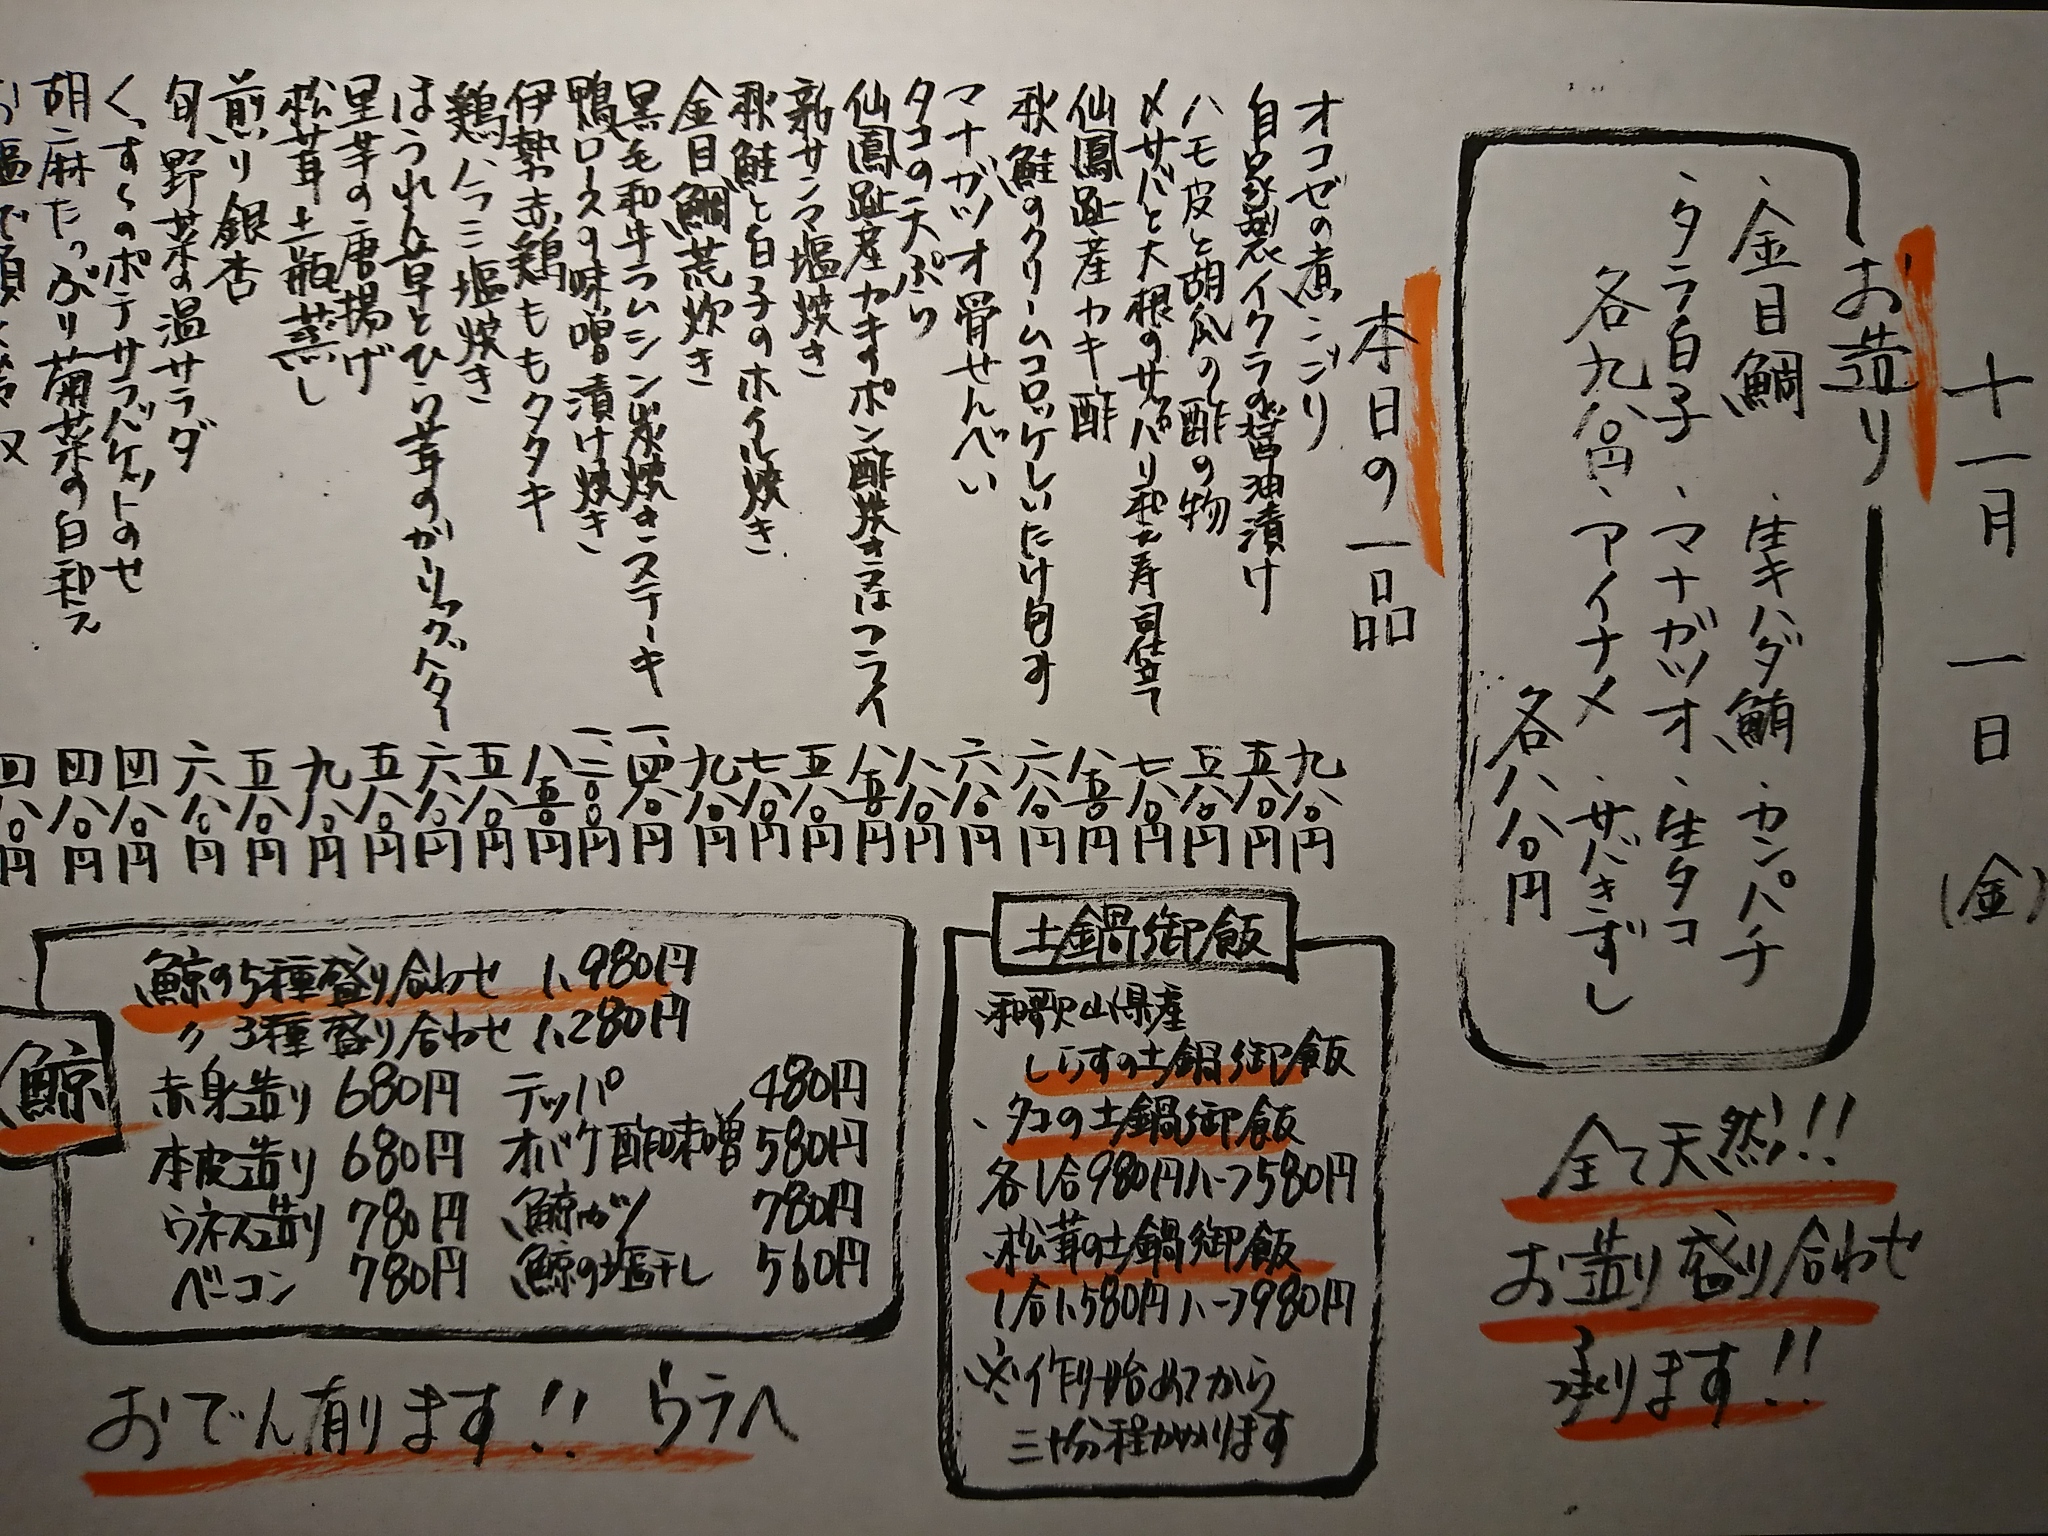 十一月 一日 (金)
お造り
・金目鯛 ・生キハダ鮪 ・カンパチ
・タラ白子 ・マナガツオ ・生タコ
各九八〇円 ・アイナメ ・サバきずし
各八八〇円
全て天然!!
お造り盛り合わせ
承ります!!
本日の一品
オコゼの煮こごり 九八〇円
自家製イクラの醤油漬け 五八〇円
ハモ皮と胡瓜の酢の物 五八〇円
〆サバと大根のサッパリ和え寿司仕立て 七八〇円
仙鳳趾産カキ酢 八五〇円
秋鮭のクリームコロッケしいたけ包み 六八〇円
マナガツオ骨せんべい 六八〇円
タコの天ぷら 八八〇円
仙鳳趾産カキのポン酢焼き又はフライ 八五〇円
新サンマ塩焼き 五八〇円
秋鮭と白子のホイル焼き 七八〇円
金目鯛荒炊き 九八〇円
黒毛和牛ラムシン炭焼きステーキ 一、四八〇円
鴨ロースの味噌漬け焼き 一、二〇〇円
伊勢赤鶏ももタタキ 八五〇円
鶏ハラミ塩焼き 五八〇円
ほうれん草とひら茸のガーリックバター 六八〇円
里芋の唐揚げ 五八〇円
松茸土瓶蒸し 九八〇円
煎り銀杏 五八〇円
旬野菜の温サラダ 六八〇円
くっすくのポテサラバゲットのせ 四八〇円
胡麻たっぷり菊菜の白和え 四八〇円
四八〇円
土鍋御飯
・和歌山県産
しらすの土鍋御飯
・タコの土鍋御飯
各1合980円ハーフ580円
・松茸の土鍋御飯
1合1、580円ハーフ980円
※作り始めてから
三十分程かかります
鯨
鯨の5種盛り合わせ 1、980円
〃 3種盛り合わせ 1、280円
赤身造り 680円 テッパ 480円
本皮造り 680円 オバケ酢味噌 580円
ウネス造り 780円 鯨カツ 780円
ベーコン 780円 鯨の塩干し 560円
おでん有ります!! ウラへ